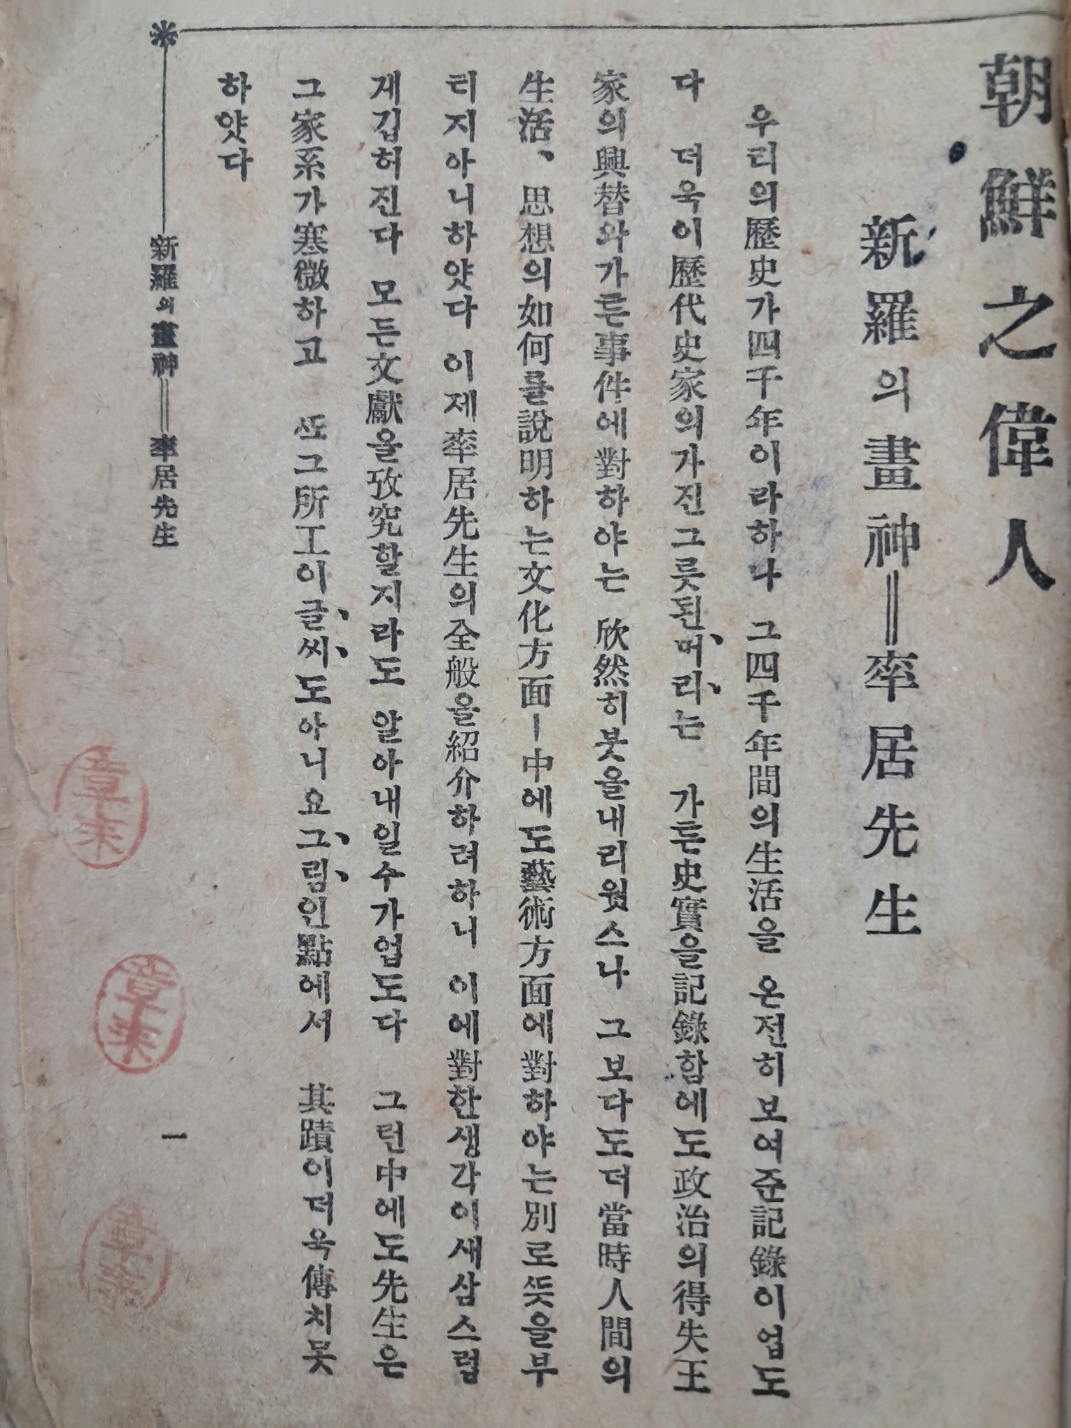 朝鮮之偉人
新羅의畫神=率居先生
우리의歷史가四千年이라하나 그四千年間의生活을 온전히보여준記錄이업도
다 더욱이歷代史家의가진그릇된머리는 가튼史實을記錄함에도政治의得失王
家의興替와가튼事件에對하야는 欣然히붓을내리웟스나 그보다도더當時人間의
生活、思想의如何를說明하는文化方面ㅡ中에도藝術方面에對하야는別로뜻을부
티지아니하얏다 이제率居先生의全般을紹介하려하니 이에對한생각이새삼스럽
게깁허진다 모든文獻을攷究할지라도 알아내일수가업도다 그런中에도先生은
그家系가寒微하고 ᄯᅩ그所工이글씨도아니요그림인點에서 其蹟이더욱傳치못
하얏다
新羅의畫神=率居先生
一
章來
章來
章來